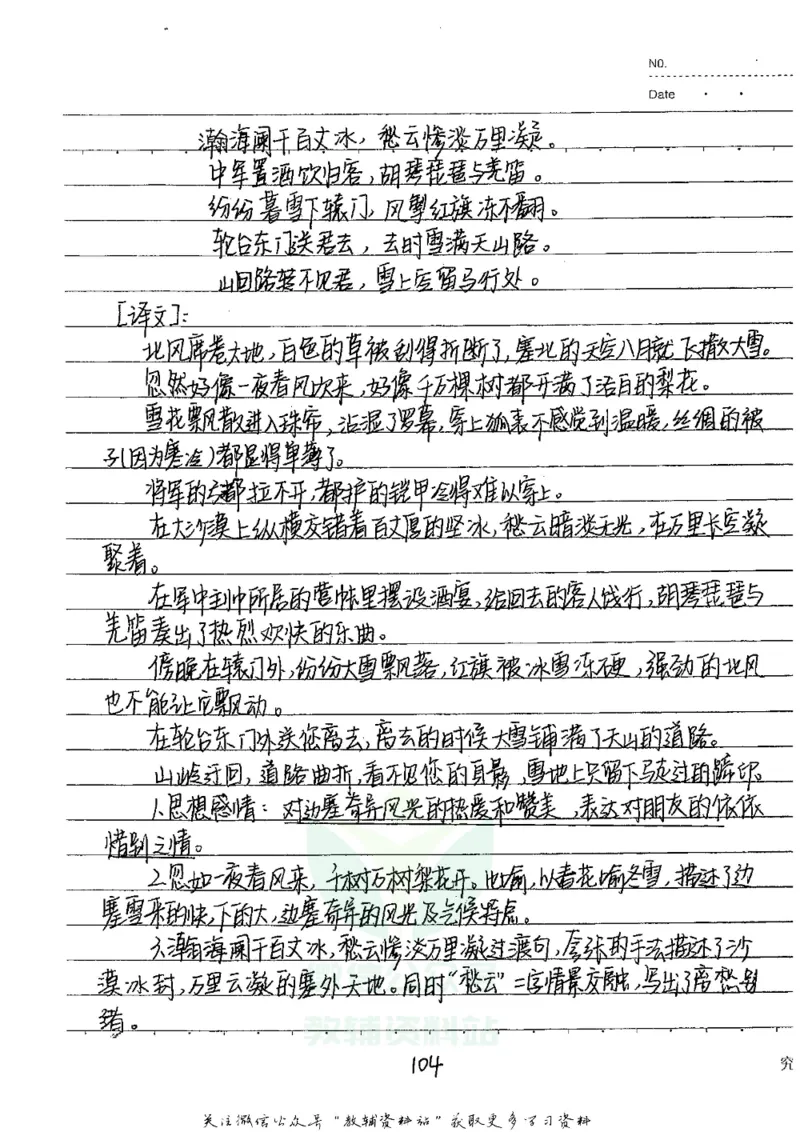 NO.
Date
瀚海阑干百丈冰，愁云惨淡万里凝。
中军置酒饮归客，胡琴琵琶与羌笛。
纷纷暮雪下辕门，风掣红旗冻不翻。
轮台东门送君去，去时雪满天山路。
山回路转不见君，雪上空留马行处。
[译文]：
北风席卷大地，白色的草被刮得折断了，塞北的天空八月就飞撒大雪。
忽然好像一夜春风吹来，好像千万棵树都开满了洁白的梨花。
雪花飘散进入珠帘，沾湿了罗幕，穿上狐裘不感觉到温暖，丝绸的被
子(因为寒冷)都显得单薄了。
将军的弓都拉不开，都护的铠甲冷得难以穿上。
在大沙漠上纵横交错着百丈厚的坚冰，愁云暗淡无光，在万里长空凝
聚着。
在军中主帅所居的营帐里摆设酒宴，给回去的客人饯行，胡琴琵琶与
羌笛奏出了热烈欢快的乐曲。
傍晚在辕门外，纷纷大雪飘落，红旗被冰雪冻硬，强劲的北风
也不能让它飘动。
在轮台东门外送您离去，离去的时候大雪铺满了天山的道路。
山岭迂回，道路曲折，看不见您的身影，雪地上只留下马走过的蹄印。
1.思想感情：对边塞奇异风光的热爱和赞美，表达对朋友的依依
惜别之情。
2.忽如一夜春风来，千树万树梨花开。比喻，以春花喻冬雪，描述了边
塞雪来的快，下的大，边塞奇异的风光及气候特点。
3.瀚海阑干百丈冰，愁云惨淡万里凝过渡句，夸张的手法描述了沙
漠冰封，万里云凝的塞外天地。同时"愁云"二字情景交融，写出了离愁别
绪。
教辅资料站
104
究
关注微信公众号"教辅资料站"获取更多学习资料